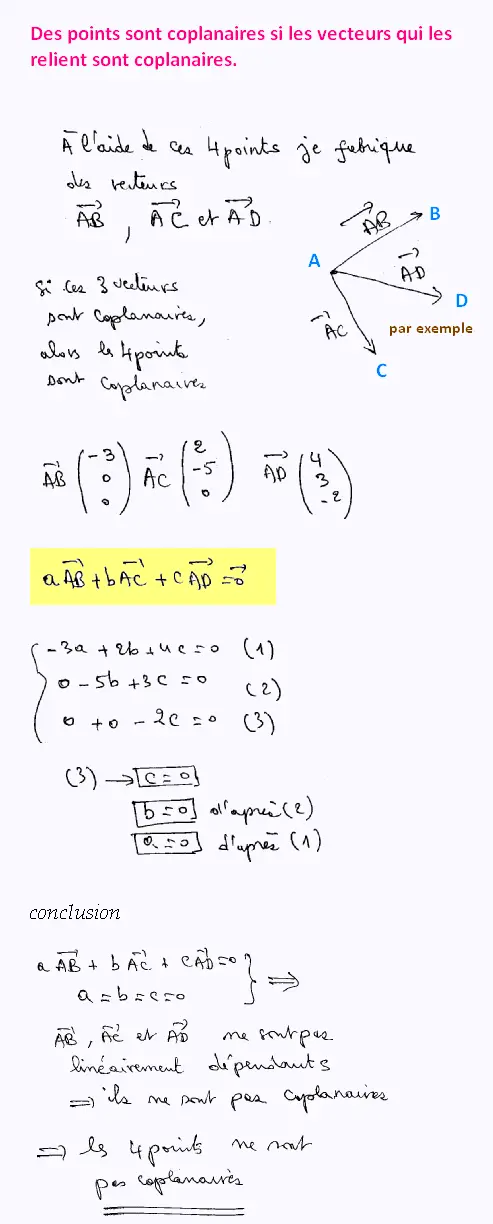 Des points sont coplanaires si les vecteurs qui les
relient sont coplanaires.
A l'aide de ces 4 points je fabrique
des vecteurs
AB, AC et AD.
B
AB
A
AD
D
par exemple
AC
C
Si ces 3 vecteurs
sont coplanaires,
alors les 4 points
sont coplanaires
AB (-3 0 0) AC (2 -5 0) AD (4 3 -2)
a AB + b AC + c AD = 0
-3a + 2b + 4c = 0 (1)
0 - 5b + 3c = 0 (2)
0 + 0 - 2c = 0 (3)
(3) → c = 0
b = 0 d'après (2)
a = 0 d'après (1)
conclusion
a AB + b AC + c AD = 0
a = b = c = 0 } ⟹
AB, AC et AD ne sont pas
linéairement dépendants
⟹ ils ne sont pas coplanaires
⟹ les 4 points ne sont
pas coplanaires